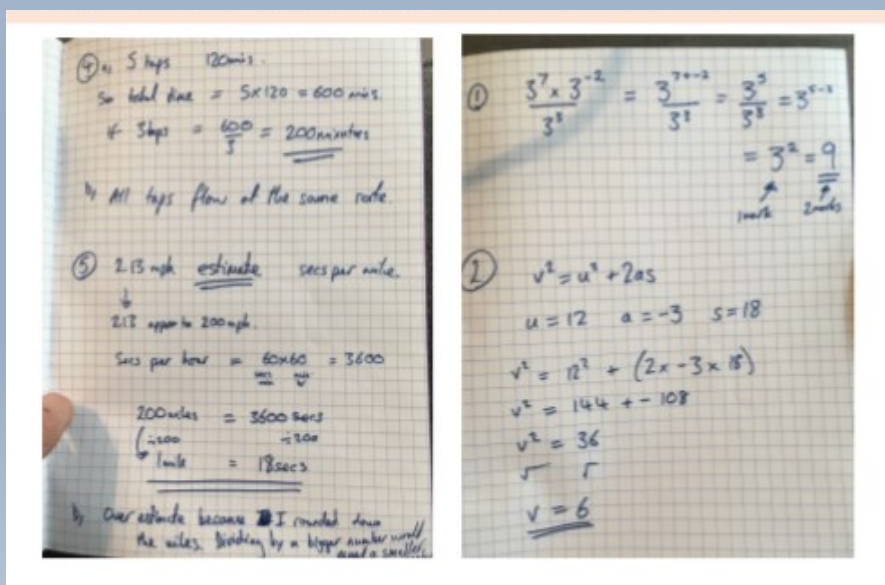 ④ a, 5 taps 120mins.
So total time = 5x120 = 600 mins.
if 3taps = 600/3 = 200minutes
b, All taps flow at the same rate.
⑤ 213 mph estimate secs per mile.
↓
213 approx to 200mph.
Secs per hour = 60x60 = 3600
200miles = 3600 secs
÷200 ÷200
1mile = 18secs
b, Over estimate because I rounded down
the miles. Dividing by a bigger number would
① 3⁷ x 3⁻² / 3³ = 3⁷⁺⁻² / 3³ = 3⁵ / 3³ = 3⁵⁻³
= 3² = 9
1mark 2marks
② v² = u² + 2as
u = 12 a = -3 s = 18
v² = 12² + (2x -3 x 18)
v² = 144 + - 108
v² = 36
√ √
v = 6